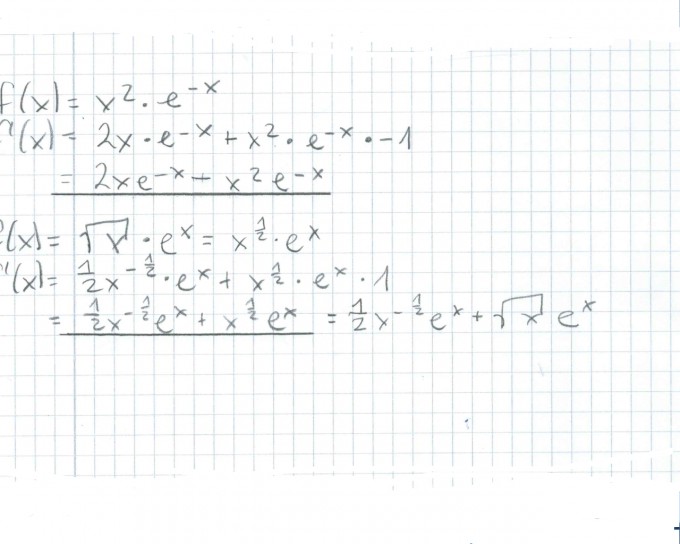 f(x) = x² · e⁻ˣ
f'(x) = 2x · e⁻ˣ + x² · e⁻ˣ · -1
= 2xe⁻ˣ - x²e⁻ˣ
f(x) = √x · eˣ = x^½ · eˣ
f'(x) = ½x^-½ · eˣ + x^½ · eˣ · 1
= ½x^-½eˣ + x^½eˣ = ½x^-½eˣ + √x eˣ